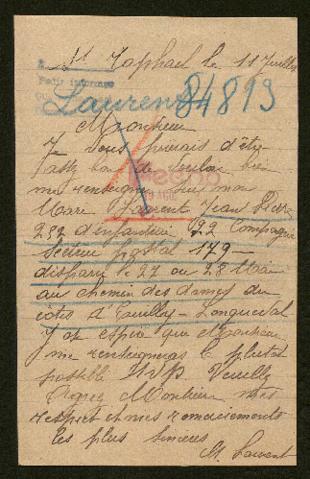 St Raphael le 11 Juillet
Laurent 84819
Monsieur
Je vous prirais d'être
assez bon de vouloir bien
me renseigner sur mon
Mari Laurent Jean
232 d'infanterie 22 Compagnie
secteur postal 179
disparu le 27 ou 28 Mai
au chemin des dames du
côtés d'Vauilly-Longueval
J'ai espoir que Monsieur
me renseigneras le plutôt
possible SVP Veuillez
Agrez Monsieur mes
respect et mes remerciements
les plus sincères
M. Laurent